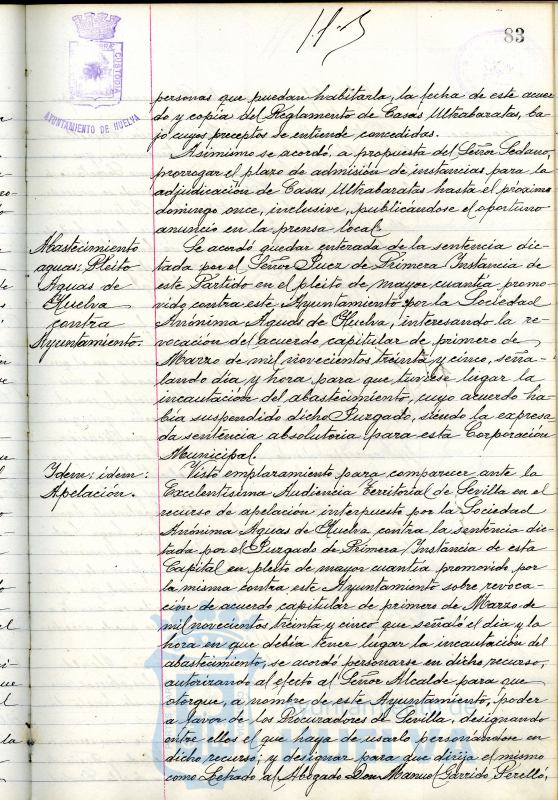 83
CUSTODIA
AYUNTAMIENTO DE HUELVA
personas que puedan habitarla, la fecha de este acuer
do y copia del Reglamento de Casas Ultrabaratas, ba-
jo cuyos preceptos se entiende concedidas.
Asimismo se acordó, a propuesta del Señor Sedano,
prorrogar el plazo de admisión de instancias para la
adjudicación de Casas Ultrabaratas hasta el próximo
domingo once, inclusive, publicándose el oportuno
anuncio en la prensa local.
Abastecimiento
aguas: Pleito
Aguas de
Huelva
contra
Ayuntamiento.
Se acordó quedar enterada de la sentencia dic-
tada por el Señor Juez de Primera Instancia de
este Partido en el pleito de mayor cuantía promo-
vido contra este Ayuntamiento por la Sociedad
Anónima Aguas de Huelva, interesando la re-
vocación del acuerdo capitular de primero de
Marzo de mil novecientos treinta y cinco, seña-
lando día y hora para que tuviese lugar la
incautación del abastecimiento, cuyo acuerdo ha-
bía suspendido dicho Juzgado, siendo la expresa
da sentencia absolutoria para esta Corporación
Municipal.
Idem: idem:
Apelación.
Visto emplazamiento para comparecer ante la
Excelentísima Audiencia Territorial de Sevilla en el
recurso de apelación interpuesto por la Sociedad
Anónima Aguas de Huelva contra la sentencia dic-
tada por el Juzgado de Primera Instancia de esta
Capital en pleito de mayor cuantía promovido por
la misma contra este Ayuntamiento sobre revoca-
ción de acuerdo capitular de primero de Marzo de
mil novecientos treinta y cinco que señaló el día y la
hora en que debía tener lugar la incautación del
abastecimiento, se acordó personarse en dicho recurso,
autorizando al efecto al Señor Alcalde para que
otorgue, a nombre de este Ayuntamiento, poder
a favor de los Procuradores de Sevilla, designando
entre ellos el que haya de usarlo personándose en
dicho recurso; y designar para que dirija el mismo
como Letrado al Abogado Don Manuel Garrido Perelló,
Ayuntamiento de
HUELVA